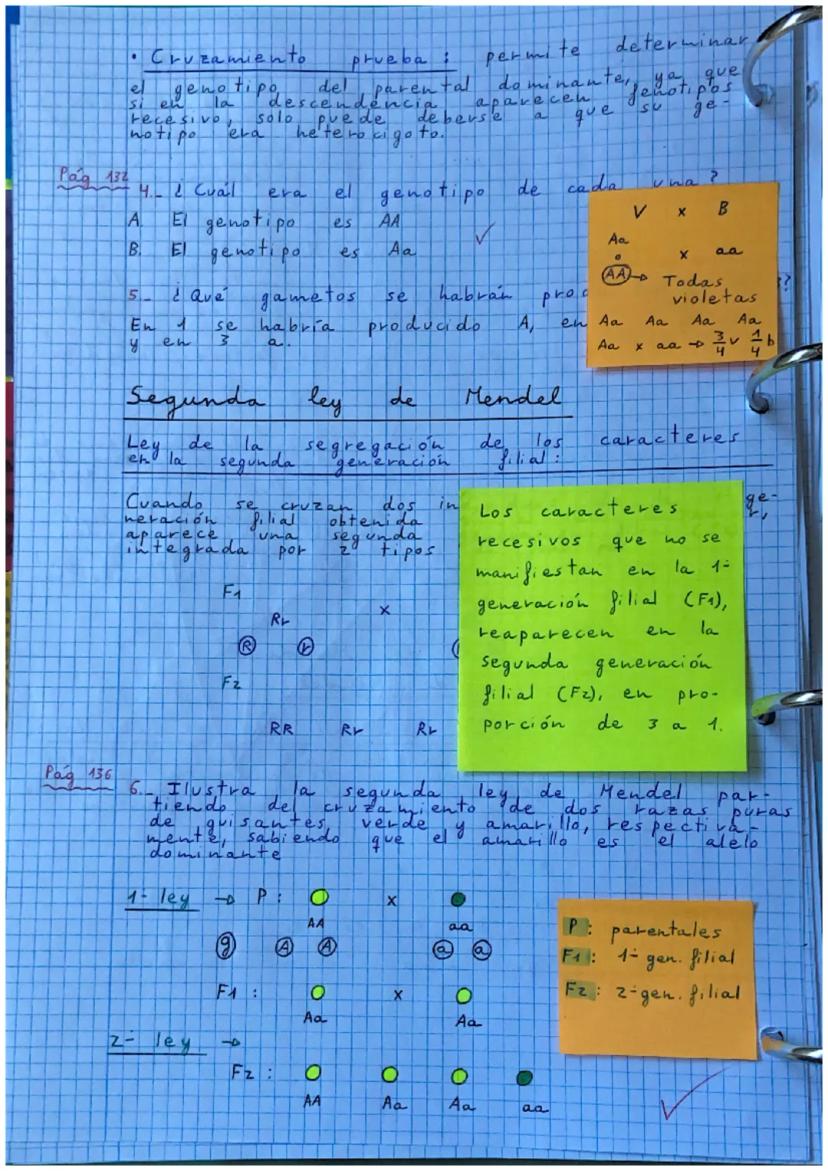 • Cruzamiento prueba: permite determinar
el genotipo del parental dominante, ya que
si en la descendencia aparecen fenotipos
recesivo, solo puede deberse a que su ge-
notipo era heterocigoto.
Pág 132
4.- ¿Cuál era el genotipo de cada una?
A. El genotipo es AA
B. El genotipo es Aa
V x B
Aa
o x aa
AA → Todas
violetas
Aa Aa Aa Aa
Aa x aa → 3/4 v 1/4 b
5.- ¿Qué gametos se habrán ?
En 1 se habría producido A, en
y en 3 a.
Segunda ley de Mendel
Ley de la segregación de los caracteres
en la segunda generación filial:
Cuando se cruzan dos in ge-
neración filial obtenida
aparece una segunda
integrada por 2 tipos
Los caracteres
recesivos que no se
manifiestan en la 1ª
generación filial (F1),
reaparecen en la
segunda generación
filial (F2), en pro-
porción de 3 a 1.
F1
Rr x
R r
F2
RR Rr Rr
Pág 136
6.- Ilustra la segunda ley de Mendel par-
tiendo del cruzamiento de dos razas puras
de guisantes, verde y amarillo, respectiva-
mente, sabiendo que el amarillo es el alelo
dominante
1ª ley → P: x
AA aa
g A A a a
F1: x
Aa Aa
2ª ley →
F2:
AA Aa Aa aa
P: parentales
F1: 1ª gen. filial
F2: 2ª gen. filial